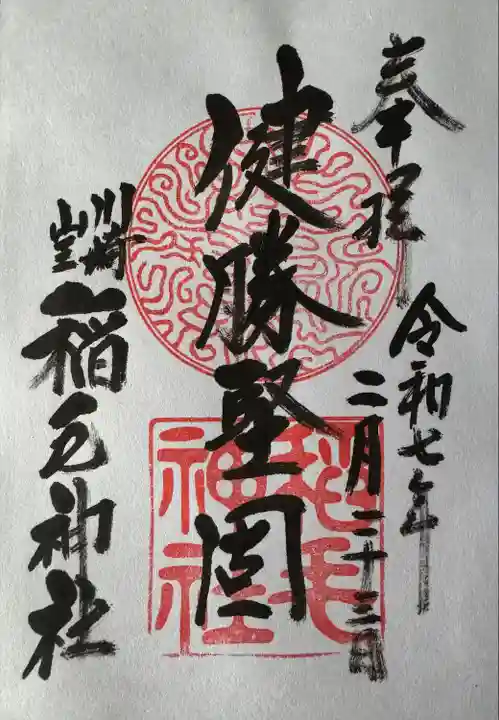 奉拝
令和七年
二月二十三日
健勝堅固
川崎
山王
稲毛神社
稲毛
神社